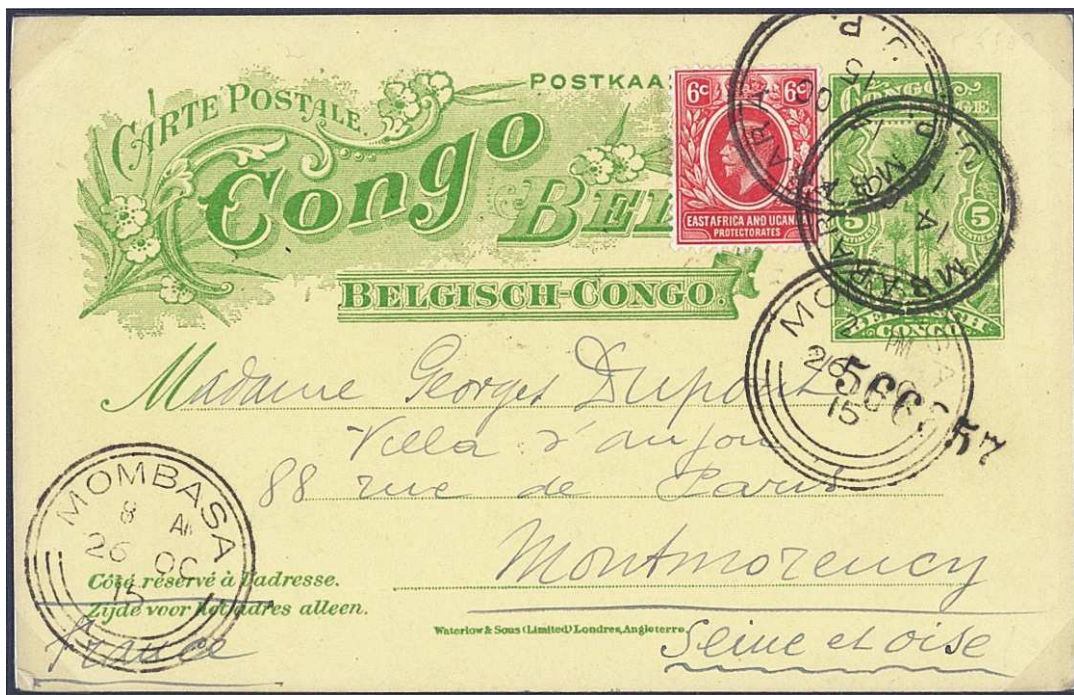 POSTKAA
CARTE POSTALE.
Congo
BEL
BELGISCH-CONGO.
6c 6c
EAST AFRICA AND UGAN
PROTECTORATES
CONGO
GE
5 5
CONGO
P.
MOMBASA
PM
26
15
566 57
Madame Georges Dupont
Villa d'anjou
88 rue de Paris
Montmorency
Seine et oise
France
MOMBASA
8 AM
26 OC
15
Côté réservé à l'adresse.
Zijde voor het adres alleen.
Waterlow & Sons (Limited) Londres, Angleterre